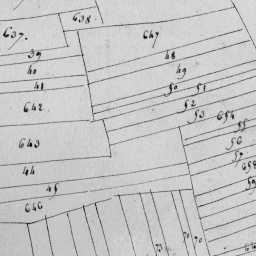 638
637.
647
39
48
40
49
41
50
51
642
52
53
654
55
643
56
57
44
45
646
73
70